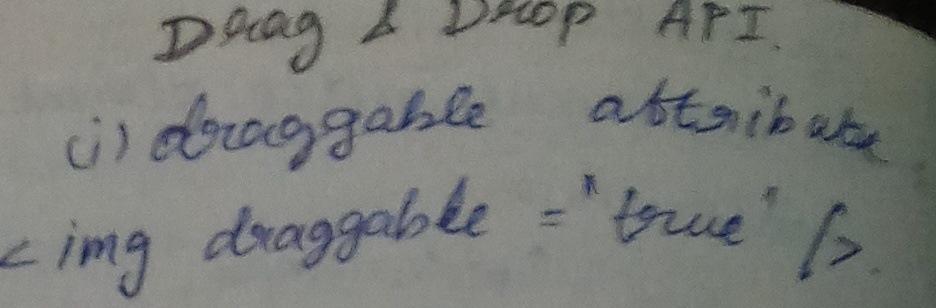 Drag & Drop API.
(i) draggable attribute
<img draggable = "true" />.